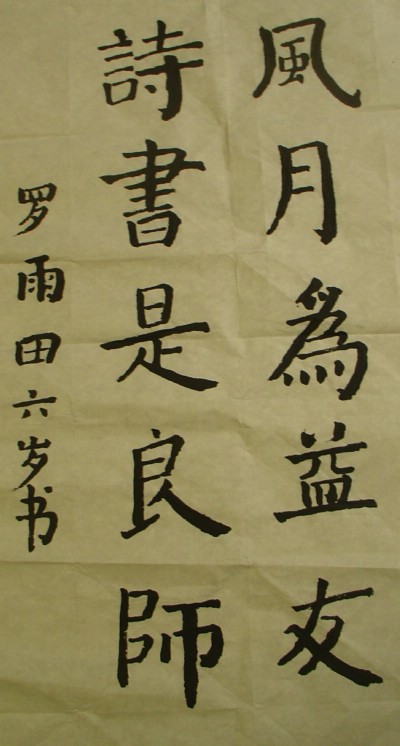 風月為益友
詩書是良師
罗雨田六岁书